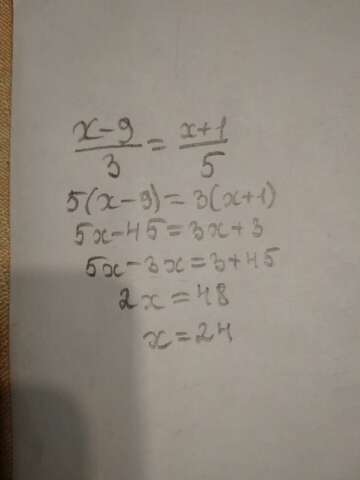 x-9/3 = x+1/5
5(x-9)=3(x+1)
5x-45=3x+3
5x-3x=3+45
2x=48
x=24